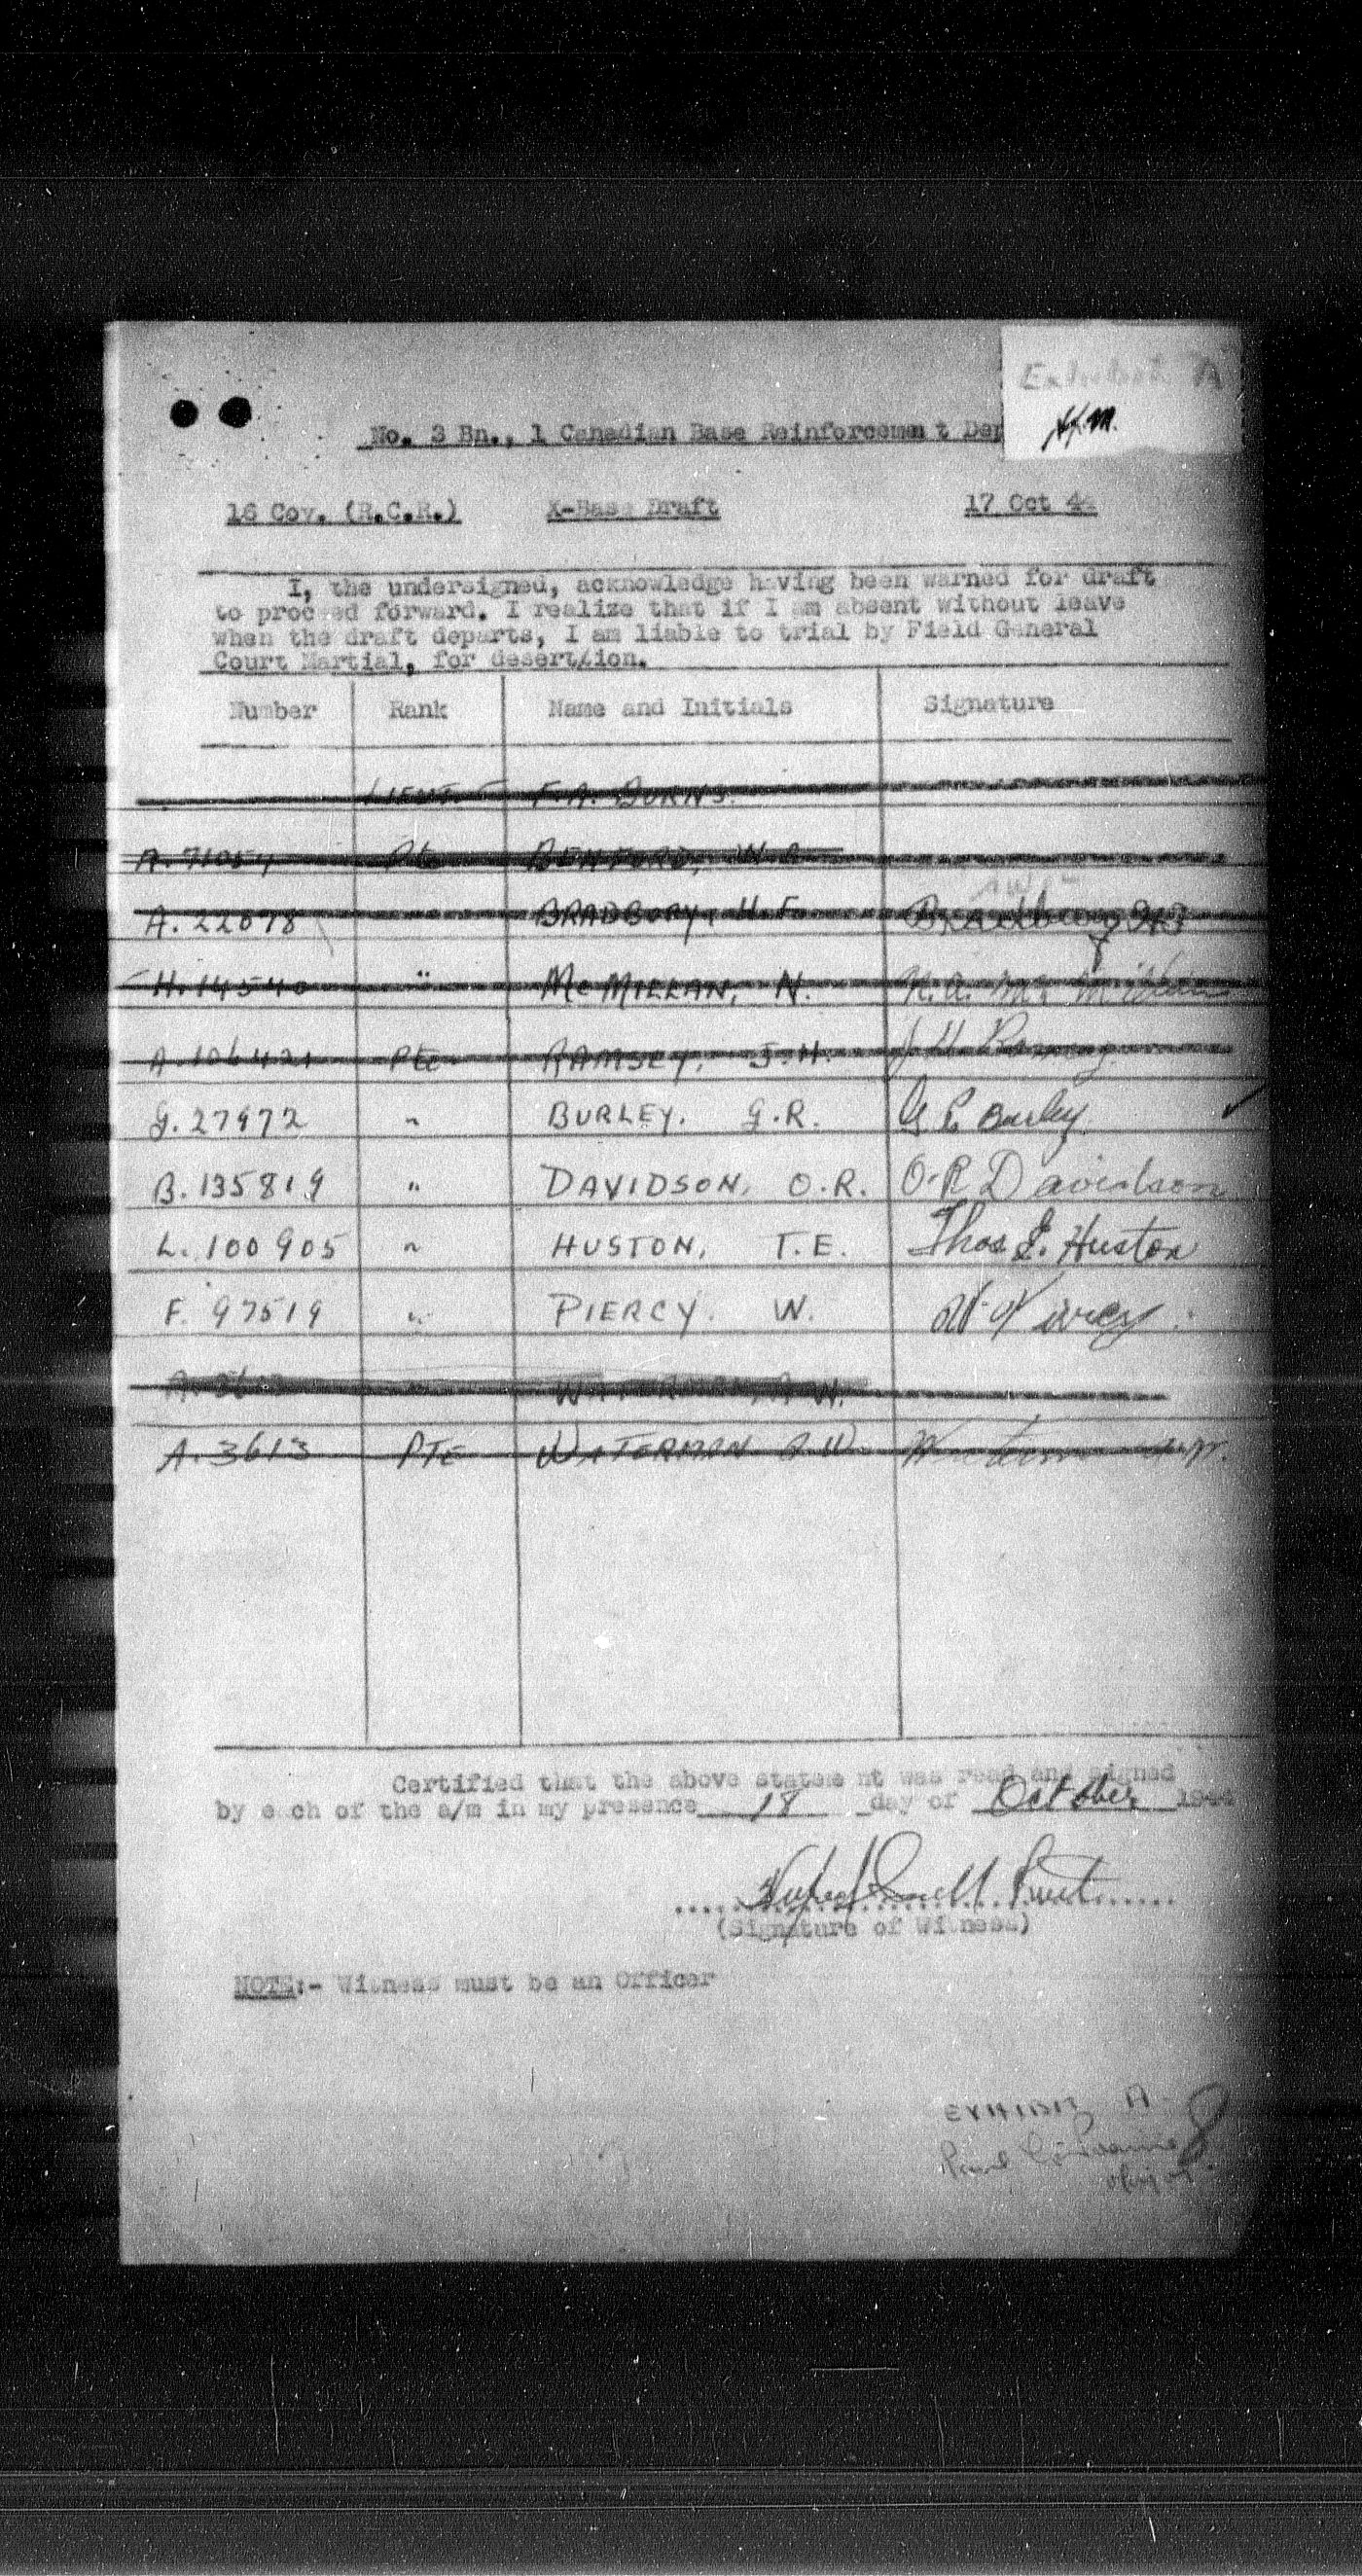 Exhibit A
No. 3 Bn., 1 Canadian Base Reinforcement Dep
16 Coy. (R.C.R.) X-Base Draft 17 Oct 44
I, the undersigned, acknowledge having been warned for draft
to proceed forward. I realize that if I am absent without leave
when the draft departs, I am liable to trial by Field General
Court Martial, for desertion.
Number Rank Name and Initials Signature
LIEUT. F.A. BURNS.
A. 71054 Pte BENFORD, W.R.
A. 22078 BRADBURY, H.F. Bradbury
H. 14540 " McMILLAN, N. N. A. McMillan
A. 106421 Pte RAMSEY, J.H. J H Ramsey
G. 27972 " BURLEY, G.R. G R Burley
B. 135819 " DAVIDSON, O.R. O.R Davidson
L. 100905 " HUSTON, T.E. Thos. E. Huston
F. 97519 " PIERCY. W. W. Piercy
A. 3613 " WATERMAN A.W.
A. 3613 PTE WATERMAN A.W. Waterman
Certified that the above statement was read and signed
by each of the a/m in my presence 18 day of October 1944
(Signature of Witness)
NOTE:- Witness must be an Officer
EXHIBIT A